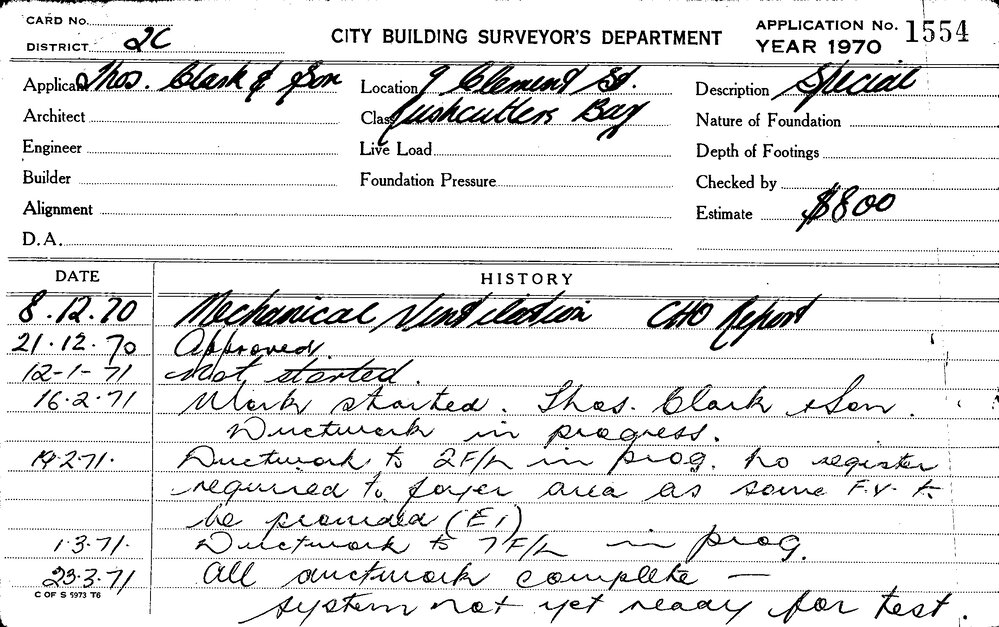 CARD No.
DISTRICT 2C
CITY BUILDING SURVEYOR'S DEPARTMENT
APPLICATION No. 1554
YEAR 1970
Applicant Thos. Clark & Son
Location 9 Clement St.
Description Special
Architect
Class Rushcutters Bay
Nature of Foundation
Engineer
Live Load
Depth of Footings
Builder
Foundation Pressure
Checked by
Alignment
Estimate $800
D.A.
DATE
HISTORY
8.12.70 Mechanical Ventilation CHO Report
21.12.70 Approved.
12-1-71 Not started.
16.2.71 Work started. Thos. Clark & Son.
Ductwork in progress.
19.2.71. Ductwork to 2F/L in prog. No register
required to foyer area as some F.V. to
be provided (E1)
1.3.71. Ductwork to 7F/L in prog.
23.3.71 All ductwork complete —
system not yet ready for test.
C OF S 5973 T6